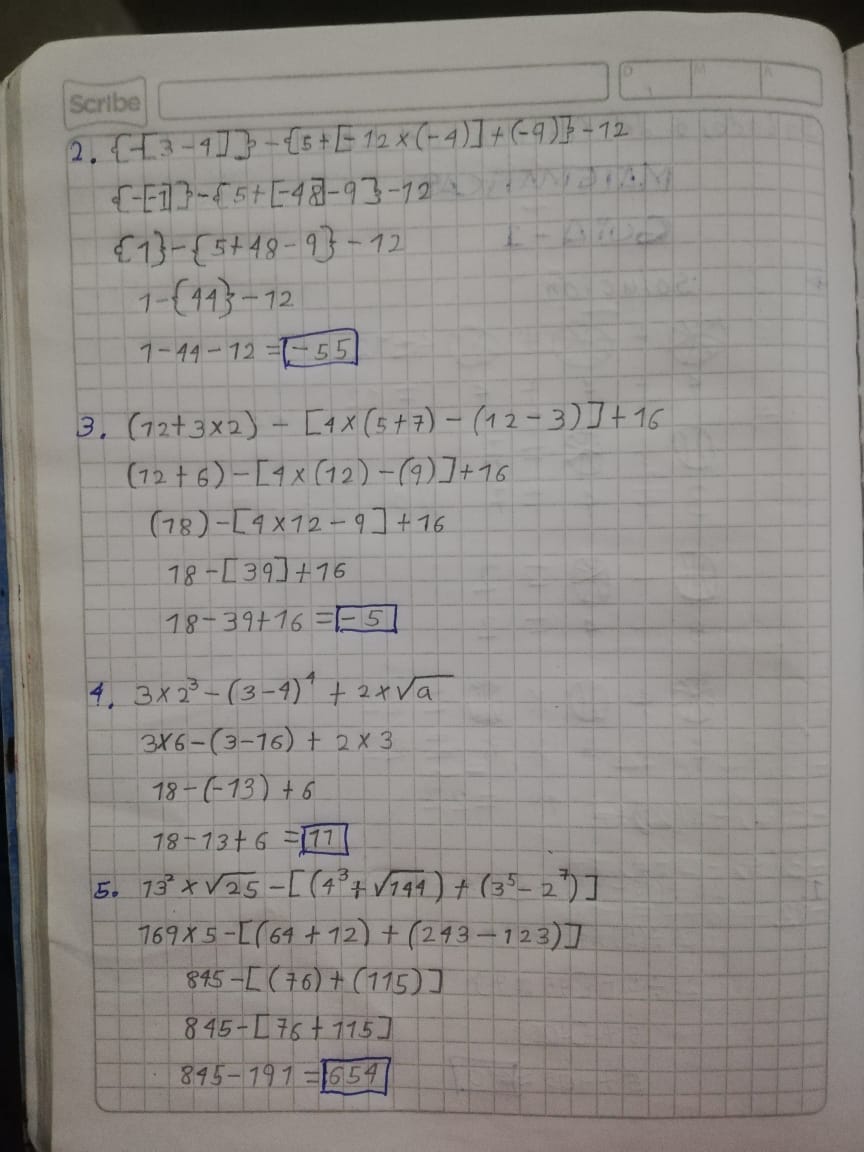 Scribe
D M A
2. {-[3-4]}-{5+[-12×(-4)]+(-9)}-12
{-[-1]}-{5+[-48]-9}-12
{1}-{5+48-9}-12
1-{44}-12
1-44-12=-55
3. (12+3×2)-[4×(5+7)-(12-3)]+16
(12+6)-[4×(12)-(9)]+16
(18)-[4×12-9]+16
18-[39]+16
18-39+16=-5
4. 3×2³-(3-4)⁴+2×√a
3×6-(3-16)+2×3
18-(-13)+6
18-13+6=11
5. 13²×√25-[(4³+√144)+(3⁵-2⁷)]
169×5-[(64+12)+(243-123)]
845-[(76)+(115)]
845-[76+115]
845-191=654